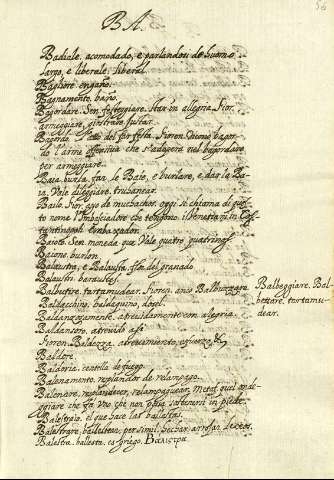 56
BA.
Badiale, acomodado, e parlandosi de huomo
largo, e liberale, liberal.
engaño.
Bagnamento, baño.
Bagordare. Sen. festeggiare, star in allegria Fior.
armeggiare, giostrare, justar.
far festa. Fioren.
l'armi che nel bagordare
per armeggiare.
Baia, burla, far le Baie, e burlare, e dar la Ba-
ia, Vale dileggiare, truhanear.
Bailo Fior. ayo de muchachos, oggi si chiama di ques-
to nome l'Imbasciadore che tengono i Venetiani in Cos-
tantinopoli Embaxador.
Baiocco. Sen. moneda que Vale quatro quatrines
Baione, burlon.
Balausta, e Balaustra, flor del granado
Balaustri, baraustes.
Balbettare, tartamudear. Fioren. anco
Balbeggiare, Bal-
betare, tartamu-
dear.
Baldacchino, baldaquino, dosel.
Baldanzosamente, atrevidamente con alegria.
Baldanzoso, atrevido assi
Fioren. Baldezza, atrevimiento, esfuerzo, &c
Baldore.
Baldoria, centella de fuego.
Balenamento, resplandor de relampago.
Balenare, resplandecer, relampaguear, metaf. quel onde-
ggiare che fa uno che non possa sostenersi in piede.
Balestraio, el que hace las ballestas.
Balestrare, ballestear, per simil. hechar, arrojar
Balestra, ballesta, es griego. Βαλιστρα